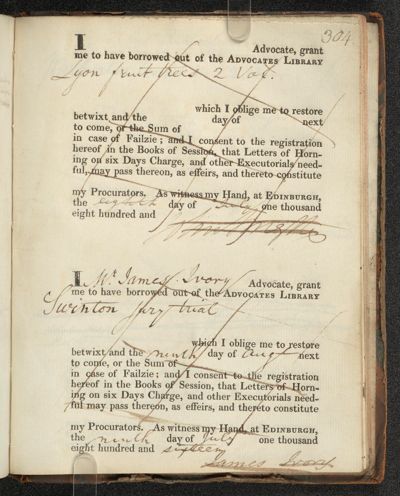 304
I Advocate, grant
me to have borrowed out of the ADVOCATES LIBRARY
Lyon fruit trees 2 Vol.
which I oblige me to restore
betwixt and the day of next
to come, or the Sum of
in case of Failzie; and I consent to the registration
hereof in the Books of Session, that Letters of Horn-
ing on six Days Charge, and other Executorials need-
ful, may pass thereon, as effeirs, and thereto constitute
my Procurators. As witness my Hand, at EDINBURGH,
the eighth day of July one thousand
eight hundred and
I Mr. James Ivory Advocate, grant
me to have borrowed out of the ADVOCATES LIBRARY
Swinton jury trial
which I oblige me to restore
betwixt and the ninth day of Augt next
to come, or the Sum of
in case of Failzie; and I consent to the registration
hereof in the Books of Session, that Letters of Horn-
ing on six Days Charge, and other Executorials need-
ful may pass thereon, as effeirs, and thereto constitute
my Procurators. As witness my Hand, at EDINBURGH,
the ninth day of July one thousand
eight hundred and sixteen
James Ivory